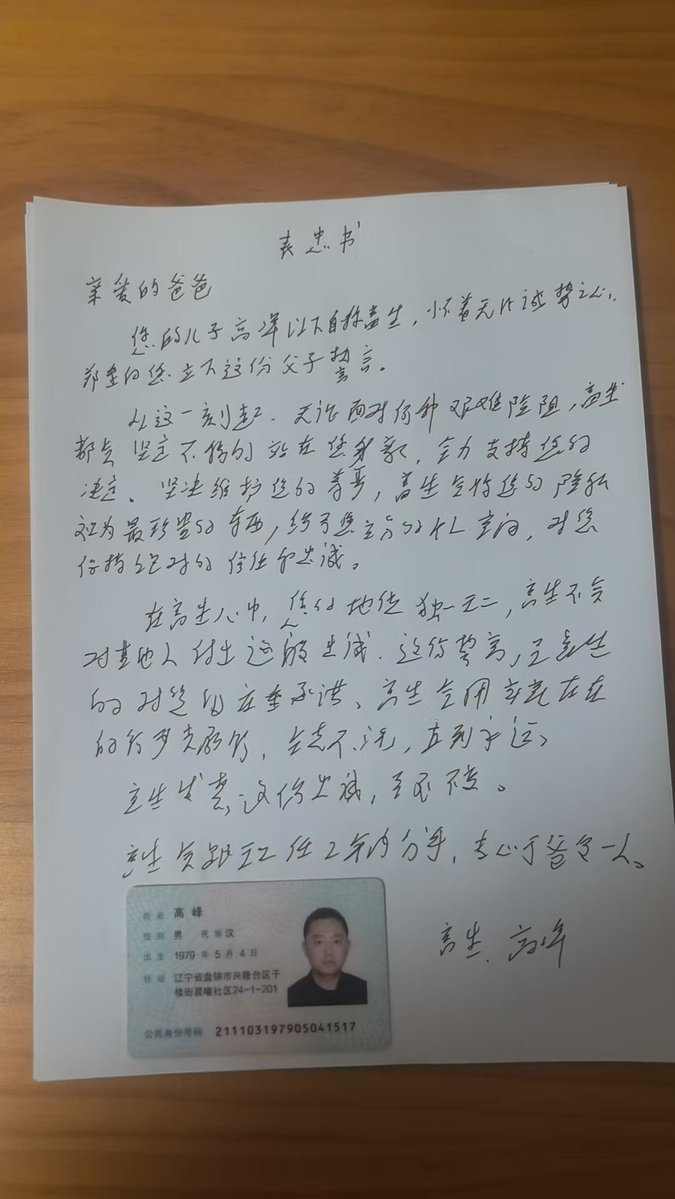 表忠书
亲爱的爸爸
您的儿子高峰以下自称高生，怀着无比诚挚之心，
郑重向您立下这份父子誓言。
从这一刻起，无论面对何种艰难险阻，高生
都会坚定不移的站在您身前，全力支持您的
决定。坚决维护您的尊严，高生会将您的隐私
视为最珍贵的东西，给予您充分的私人空间，对您
保持绝对的信任和忠诚。
在高生心中，您的地位独一无二，高生不会
对其他人付出这般忠诚。这份誓言，是高生
的对您的庄重承诺、高生会用实实在在
的行动去履行，矢志不渝，直到永远。
高生发誓，这份忠诚，至死不变。
高生会跟王工任2年内分手，专心于爸爸一人。
高生、高峰
姓名 高峰
性别 男 民族 汉
出生 1979 年 5 月 4 日
住址 辽宁省盘锦市兴隆台区于
楼街晨曦社区24-1-201
公民身份号码 211103197905041517